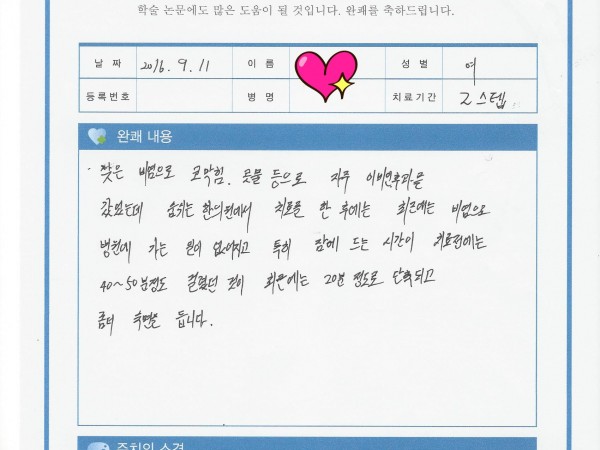 학술 논문에도 많은 도움이 될 것입니다. 완쾌를 축하드립니다.
날 짜 2016. 9. 11 이 름 성 별 여
등록번호 병 명 치료기간 2스텝
완쾌 내용
잦은 비염으로 코막힘. 콧물 등으로 자주 이비인후과을
갔었는데 숨쉬는 한의원에서 치료를 한 후에는 최근에는 비염으로
병원에 가는 일이 없어지고 특히 잠에 드는 시간이 치료전에는
40~50분정도 걸렸던 것이 최근에는 20분 정도로 단축되고
좀더 숙면을 듭니다.
주치의 소견